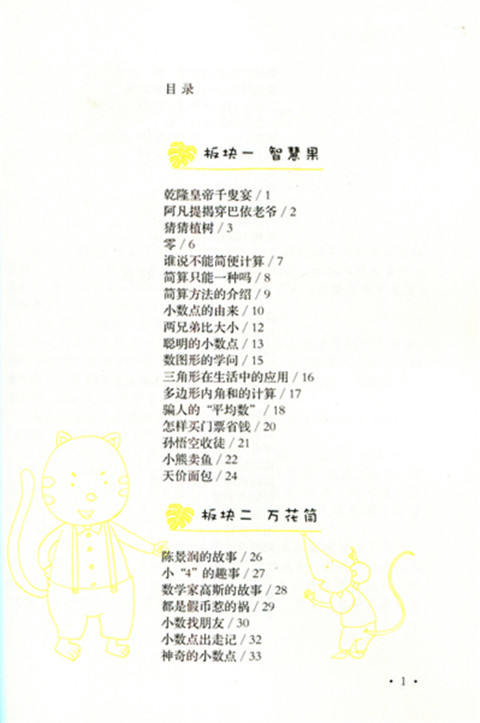 目录
板块一 智慧果
乾隆皇帝千叟宴 / 1
阿凡提揭穿巴依老爷 / 2
猜猜植树 / 3
零 / 6
谁说不能简便计算 / 7
简算只能一种吗 / 8
简算方法的介绍 / 9
小数点的由来 / 10
两兄弟比大小 / 12
聪明的小数点 / 13
数图形的学问 / 15
三角形在生活中的应用 / 16
多边形内角和的计算 / 17
骗人的“平均数” / 18
怎样买门票省钱 / 20
孙悟空收徒 / 21
小熊卖鱼 / 22
天价面包 / 24
板块二 万花筒
陈景润的故事 / 26
小“4”的趣事 / 27
数学家高斯的故事 / 28
都是假币惹的祸 / 29
小数找朋友 / 30
小数点出走记 / 32
神奇的小数点 / 33
· 1 ·